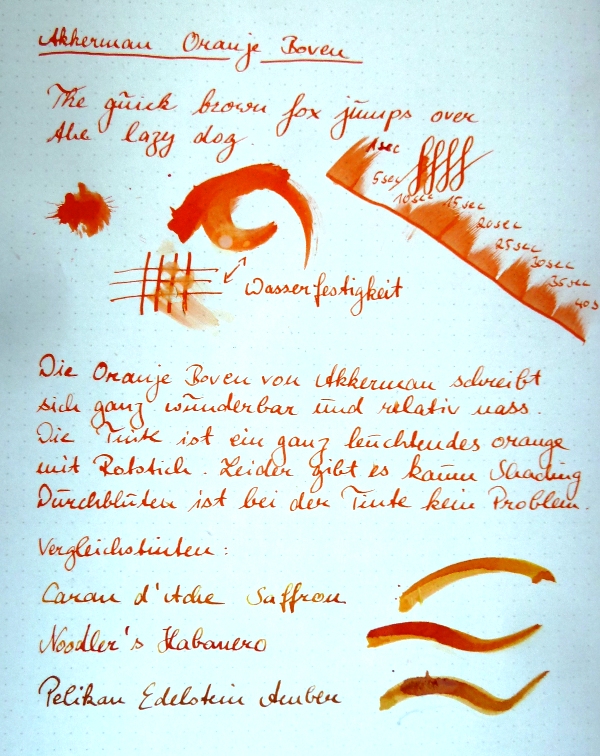 Akkerman Oranje Boven
The quick brown fox jumps over
the lazy dog
1sec
5sec
10sec
15sec
20sec
25sec
30sec
35sec
40s
Wasserfestigkeit
Die Oranje Boven von Akkerman schreibt
sich ganz wunderbar und relativ nass.
Die Tinte ist ein ganz leuchtendes orange
mit Rotstich. Leider gibt es kaum Shading
Durchbluten ist bei der Tinte kein Problem.
Vergleichstinten:
Caran d'Ache Saffron
Noodler's Habanero
Pelikan Edelstein Amber